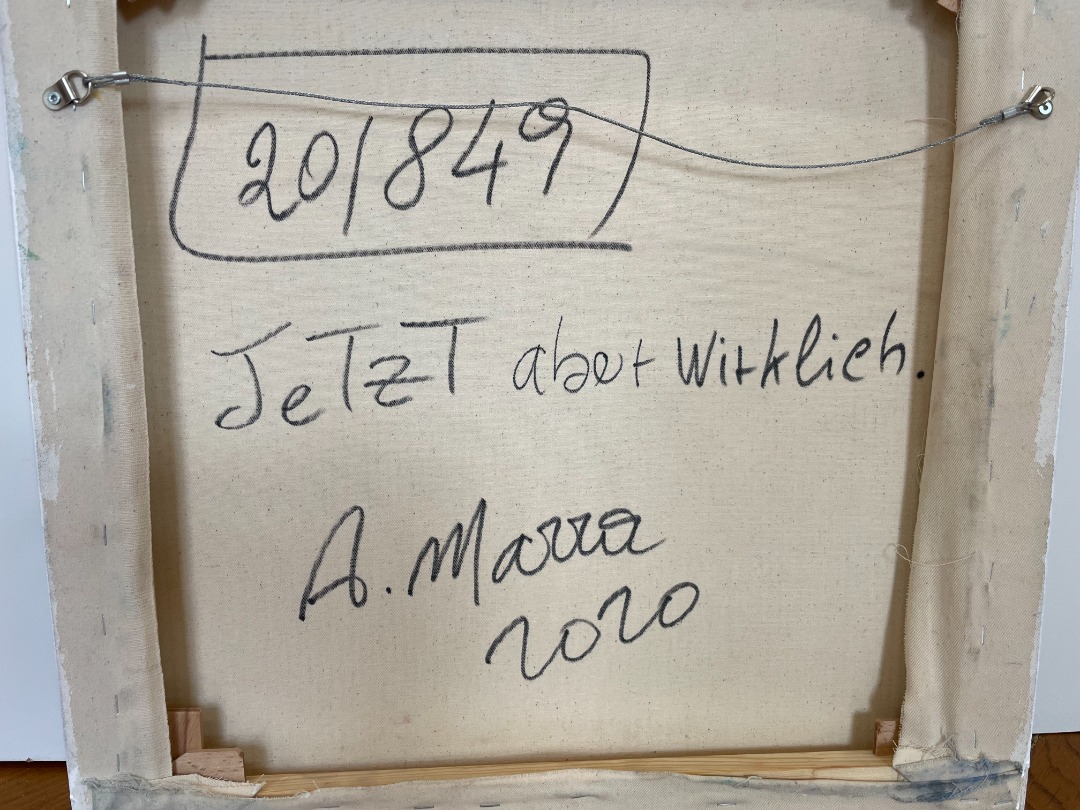 20/849
JeTzT aber Wirklich.
A. Marra
2020